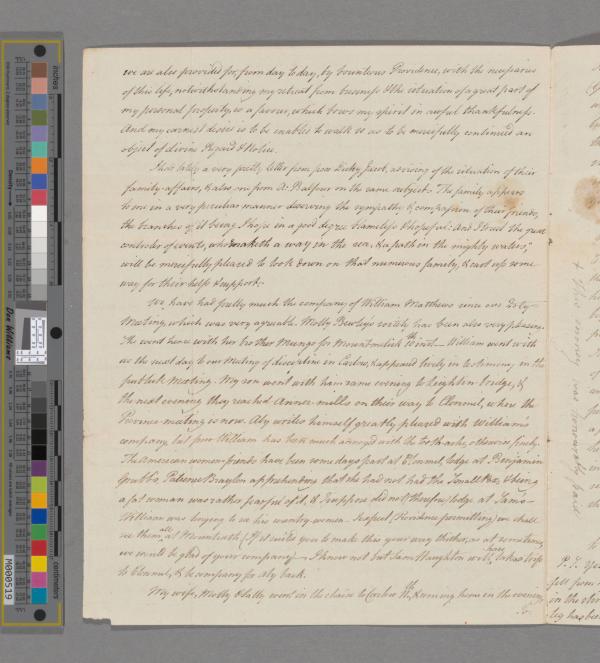 we are also provided for, from day to day, by bounteous Providence, with the necessaries
of this life, notwithstanding my retreat from business & the situation of a great part of
my personal property, is a favour, which bows my spirit in awful thankfulness.
And my earnest desire is to be enabled to walk so as to be mercifully continued an
object of divine Regard & Notice.
I have lately a very pretty letter from poor Jacob, advising of the situation of their
family affairs, & also one from A: Balfour on the same subject. The family appears
to me in a very peculiar manner deserving the sympathy & compassion of their friends,
the branches of it being I hope in a good degree blameless & hopeful: And I trust the great
controler of events, who maketh a way in the sea, & a path in the mighty waters,"
will be mercifully pleased to look down on that numerous family, & cast up some
way for their help & support.
We have had pretty much the company of William Matthews since our
Meeting, which was very agreeable. Molly Bewley's society has been also very pleasing.
She went hence with her brother Mungo for Mountmelick th inst. William went with
us the next day to our Meeting of discipline in Carlow, & appeared lively in testimony in the
publick meeting. My son went with him same evening to Leighlin-bridge, &
the next evening they reached Anner-mills on their way to Clonmel, where the
Province-meeting is now. Aby writes himself greatly pleased with William's
company, but poor William has been much annoyed with the Tooth-ache, otherwise finely.
The American women-friends have been some days past at Clonmel, lodge at Benjamin
Grubb's, Patience Brayton apprehending that she had not had the Small Pox, & being
a fat woman was rather fearful of it, & I suppose did not therefore lodge at Sam's
William was longing to see his country-women. I expect, Providence permitting, we shall
see them all at Monthrath (if it suits you to make that your way thither, as at some times,
we would be glad of your company) I know not but Sam Haughton will have taken a trip
to Clonmel, & be company for Aby back.
My wife, Molly & Sally went in the chaise to Carlow th, & coming home in the evening
M000519
inches
centimeters
Don Williams
P. S.
fell from
in the
leg has been